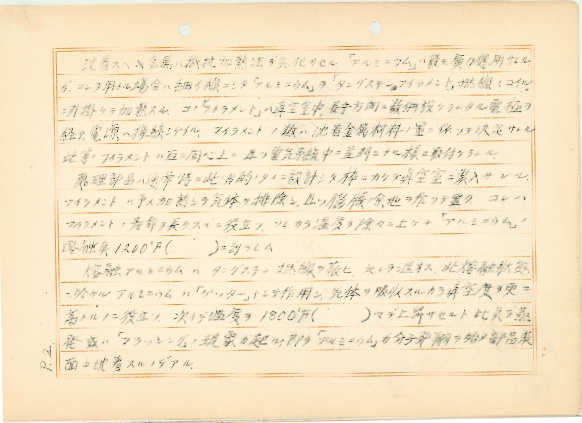 沈着スベキ金属ハ抵抗加熱法デ気化サセル.「アルミニウム」ハ最モ廣ク使用サレル
ガ、コレヲ用ヒル場合ハ細イ線ニシタ「アルミニウム」ヲ「タングステンフィラメント」撚線ノコイル
ニ引掛ケテ加熱スル. コノ「フィラメント」ハ真空室内 方向ニ数個設ケラレタル電極ヲ
経テ電源ヘ接続シテアル. フィラメントノ数ハ沈着金属材料ノ量ニ依ツテ決定サレル
此等ノフィラメントハ互ニ同心上ニ且ツ電気系統中ニ並列ニナル様ニ取付ケラレル.
處理部品ハ通常特ニ此ノ目的ノタメニ設計シタ枠ニカケテ真空室ニ装入サレル.
フィラメントハ予メ加熱シテ気体ヲ排除シ、且ツ膨脹余地ヲ作ツテ置ク コレハ
フィラメントノ寿命ヲ長クスルニ役立ツ. ソレカラ温度ヲ除々ニ上ゲテ「アルミニウム」ノ
溶融点1200°F( )ニ到ラシム
熔融アルミニウムハタングステン撚線ヲ 此熔融状態
ニ於ケルアルミニウムハ「ゲッター」トシテ作用シ、気体ヲ吸収スルカラ真空度ヲ更ニ
高メルノニ役立ツ. 次イデ温度ヲ1800°F( )マデ上昇サセルト此処ニ蒸
発或ハ「フラッシング」ノ現象ガ起ル. 即チ「アルミニウム」ガ分子飛翔ヲ始メ部品表
面ニ沈着スルノデアル.
P.2.